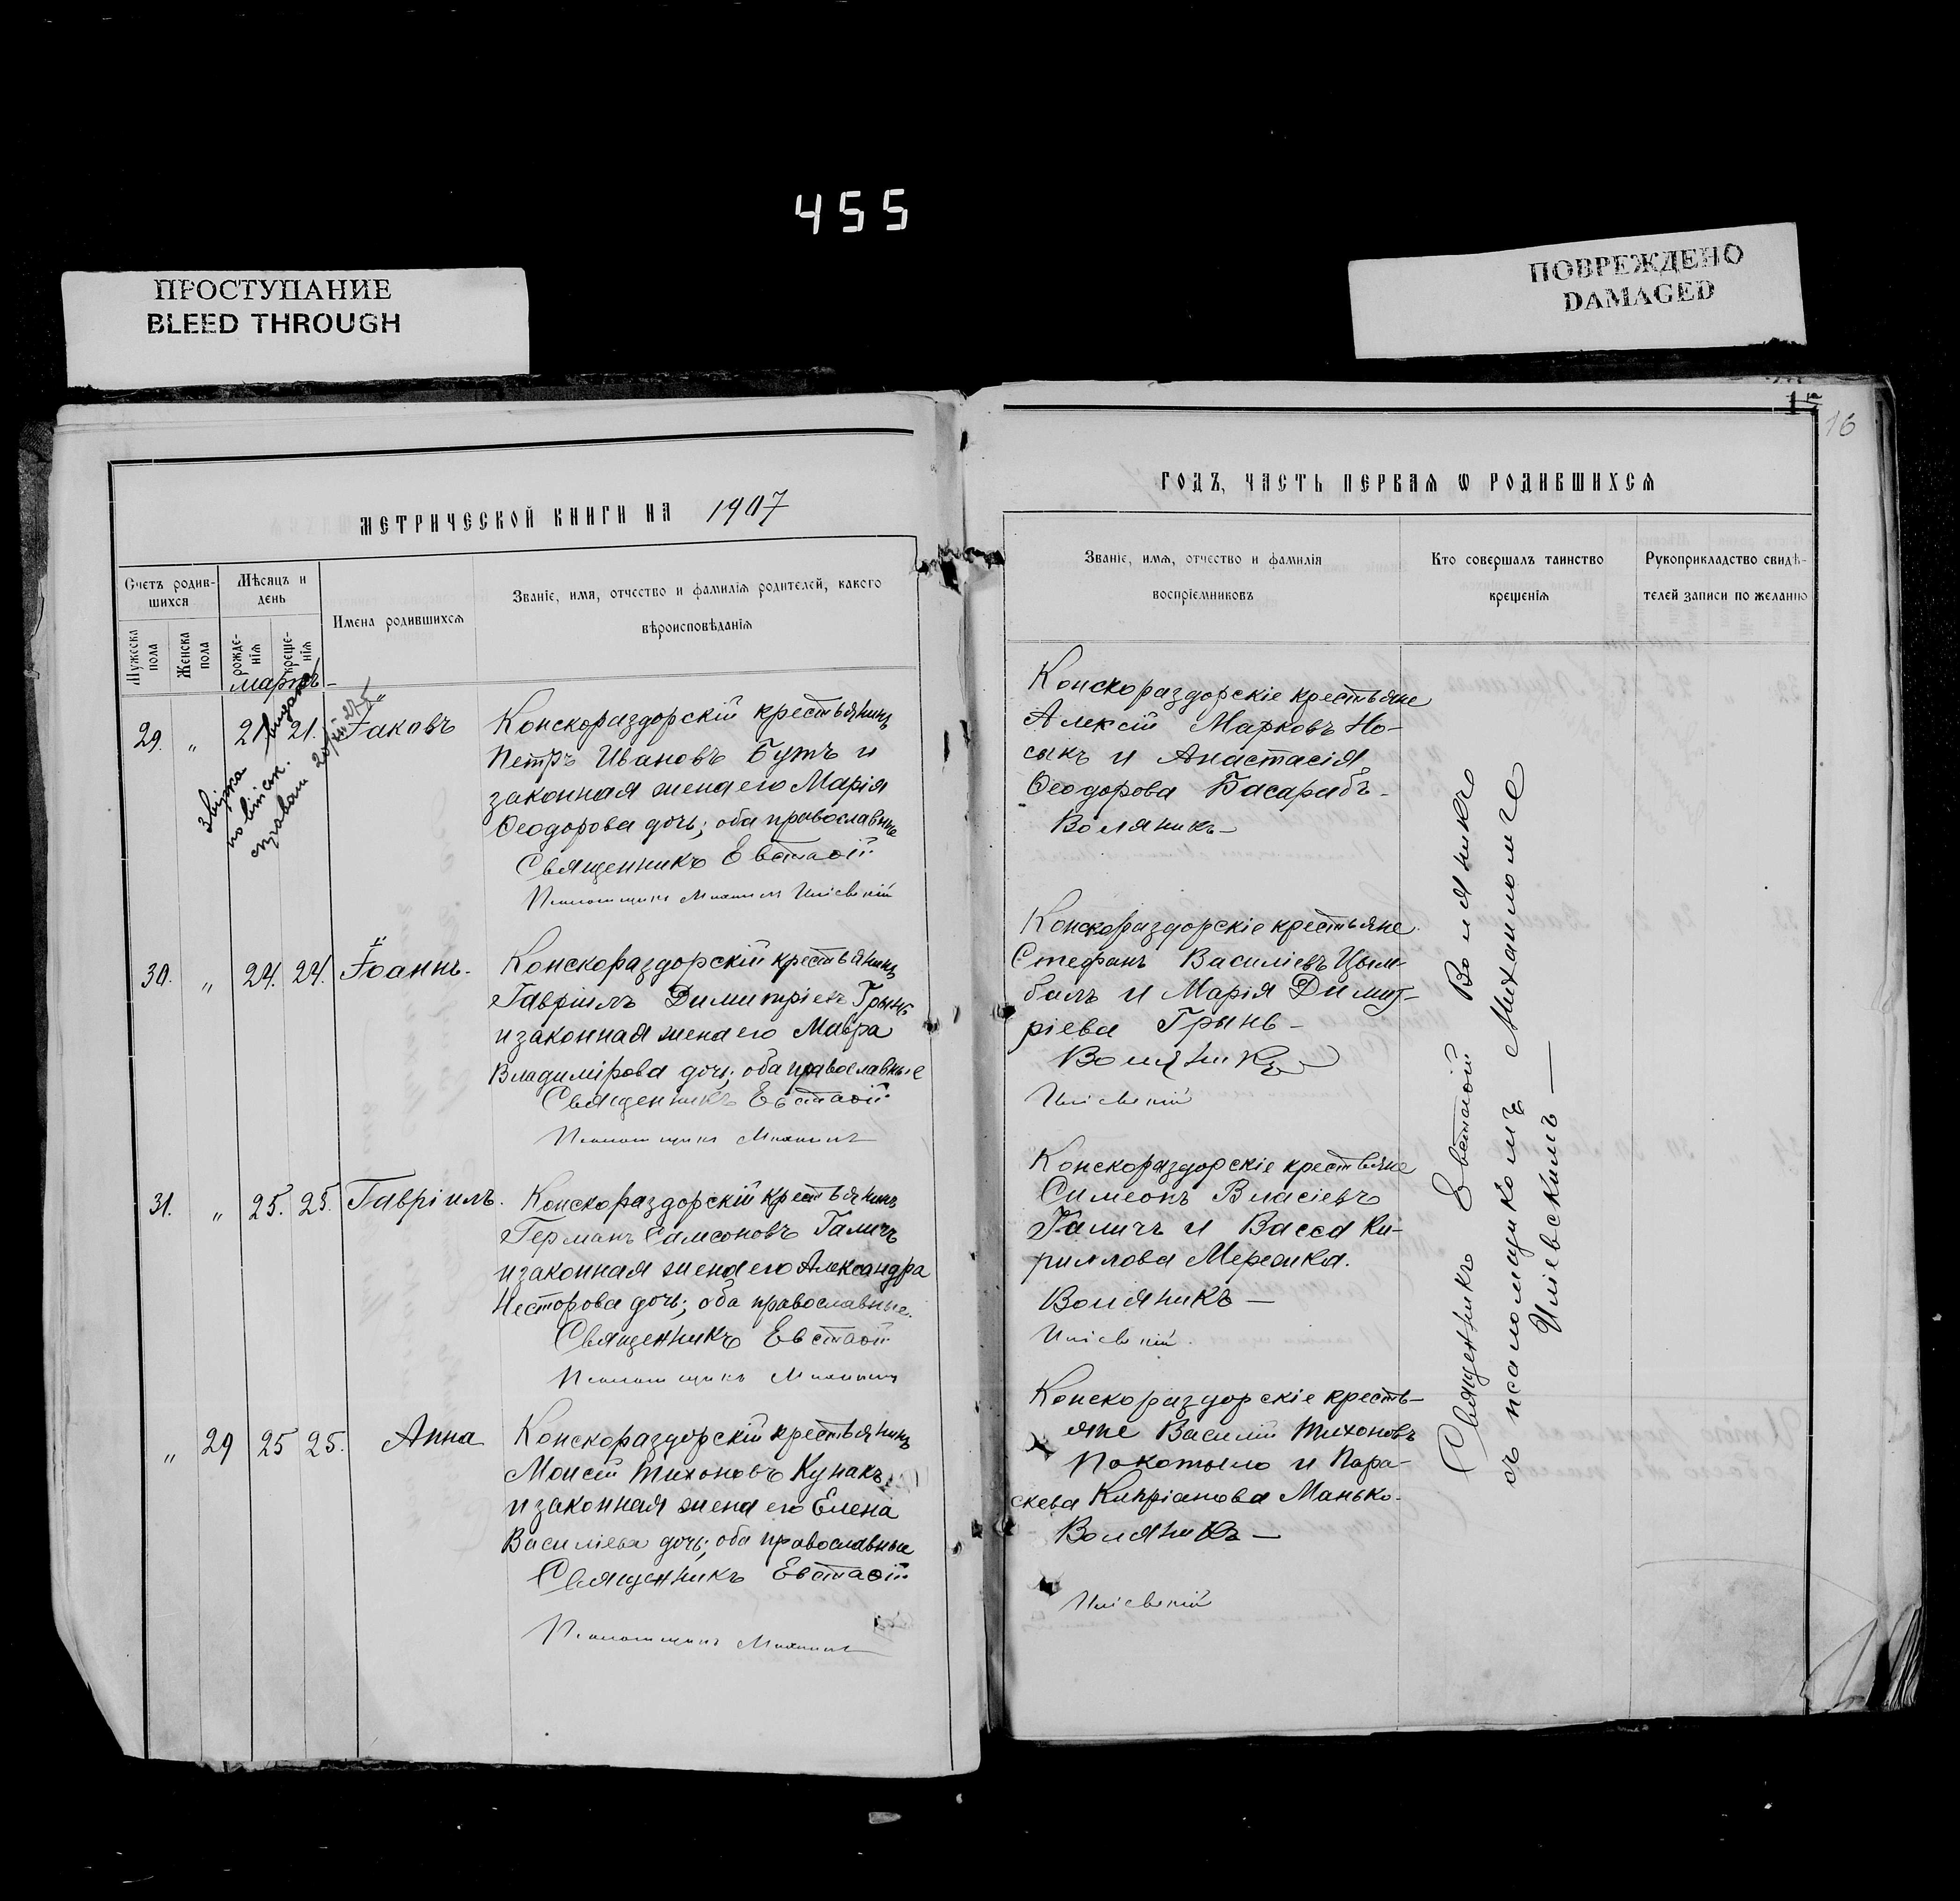 455
ПРОСТУПАНИЕ
BLEED THROUGH
ПОВРЕЖДЕНО
DAMAGED
16
МЕТРИЧЕСКОЙ КНИГИ НА 1907
Счетъ родив-
шихся
Мѣсяцъ и
день
Имена родившихся
Званіе, имя, отчество и фамилія родителей, какого
вѣроисповѣданія
Мужеска
пола
Женска
пола
рожде-
нія
креще-
нія
мартъ
29. " 21. 21. Іаковъ
Конскораздорскій крестьянинъ
Петръ Ивановъ Бутъ и
законная жена его Марія
Ѳеодорова дочь; оба православные
Священникъ Евстаѳій
Псаломщикъ Михаилъ Иліевскій
по військ.
справам
30. " 24. 24. Іоаннъ.
Конскораздорскій крестьянинъ
Гавріилъ Димитріевъ Грынь
и законная жена его Мавра
Владимірова дочь; оба православные
Священникъ Евстаѳій
Псаломщикъ Михаилъ
31. " 25. 25. Гавріилъ.
Конскораздорскій крестьянинъ
Германъ Самсоновъ Галичъ
и законная жена его Александра
Несторова дочь; оба православные.
Священникъ Евстаѳій
Псаломщикъ Михаилъ
" 29 25 25. Анна
Конскораздорскій крестьянинъ
Моисей Тихоновъ Кунакъ
и законная жена его Елена
Василіева дочь; оба православные
Священникъ Евстаѳій
Псаломщикъ Михаилъ
ГОДЪ, ЧАСТЬ ПЕРВАЯ Ѡ РОДИВШИХСЯ
Званіе, имя, отчество и фамилія
воспріемниковъ
Кто совершалъ таинство
крещенія
Рукоприкладство свидѣ-
телей записи по желанію
Конскораздорскіе крестьяне
Алексій Марковъ Но-
сыкъ и Анастасія
Ѳеодорова Басарабъ.
Воляникъ
Конскораздорскіе крестьяне
Стефанъ Василіевъ Цым-
балъ и Марія Димит-
ріева Грынь
Воляникъ
Иліевскій
Конскораздорскіе крестьяне
Симеонъ Власіевъ
Галичъ и Васса Ки-
риллова
Воляникъ
Иліевскій.
Конскораздорскіе кресть-
яне Василій Тихоновъ
Покотыло и Пара-
скева Кипріанова Манько.
Воляникъ
Иліевскій
Священникъ Евстаѳій Воляникъ
съ псаломщикомъ Михаиломъ
Иліевскимъ